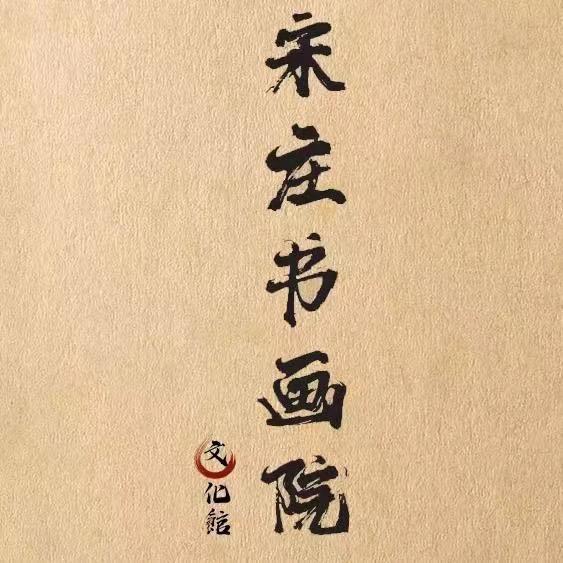 宋庄书画院
文化館